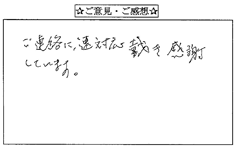 ☆ご意見・ご感想☆
ご連絡に、速対応戴き感謝
しています。